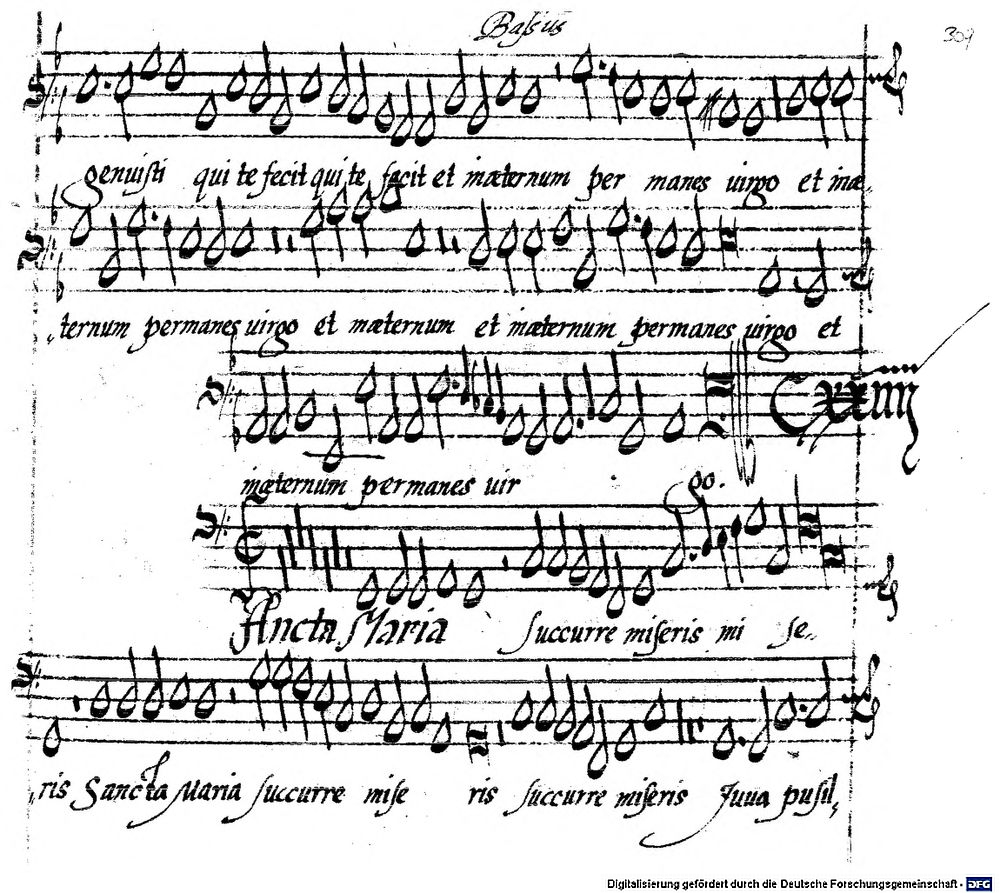 Bassus
309
genuisti qui te fecit qui te fecit et inæternum per manes virgo et inæ
ternum permanes virgo et inæternum et inæternum permanes virgo et
Cxxiiii
inæternum permanes vir go.
SAncta Maria succurre miseris mi se
ris Sancta Maria succurre mise ris succurre miseris Juva pusil
Digitalisierung gefördert durch die Deutsche Forschungsgemeinschaft - DFG